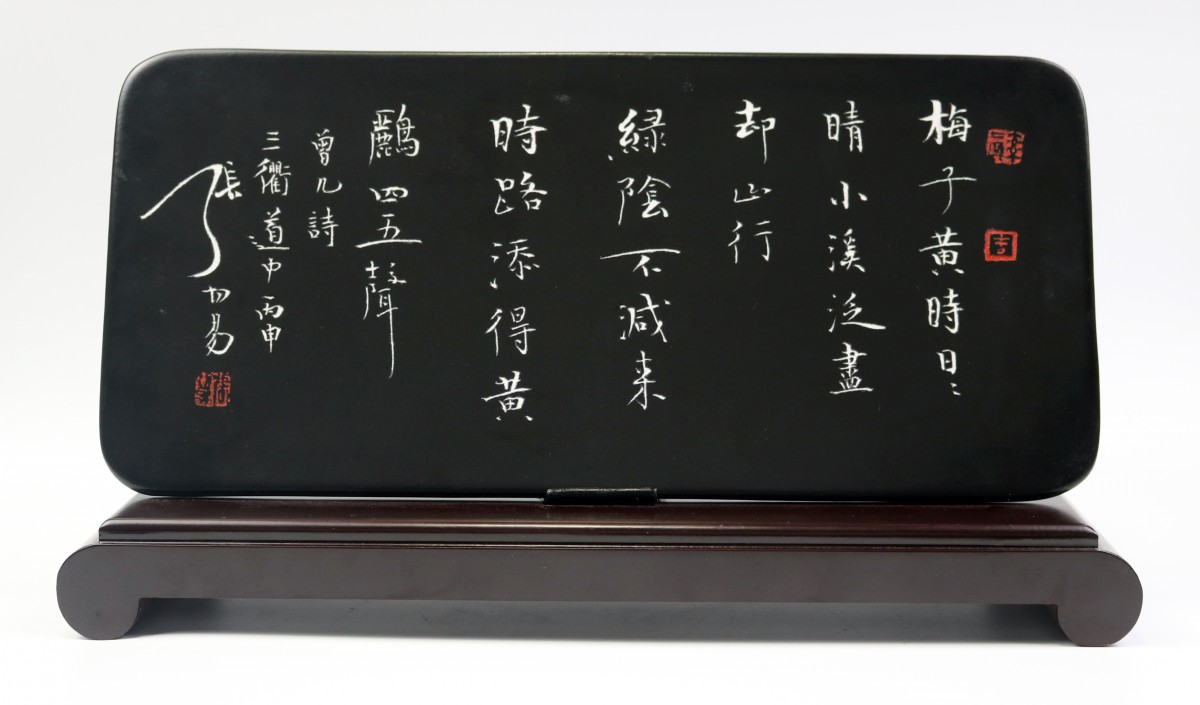 梅子黄時日〻
晴小溪泛盡
却山行
緑陰不減来
時路添得黄
鸝四五聲
曾几詩
三衢道中丙申
張